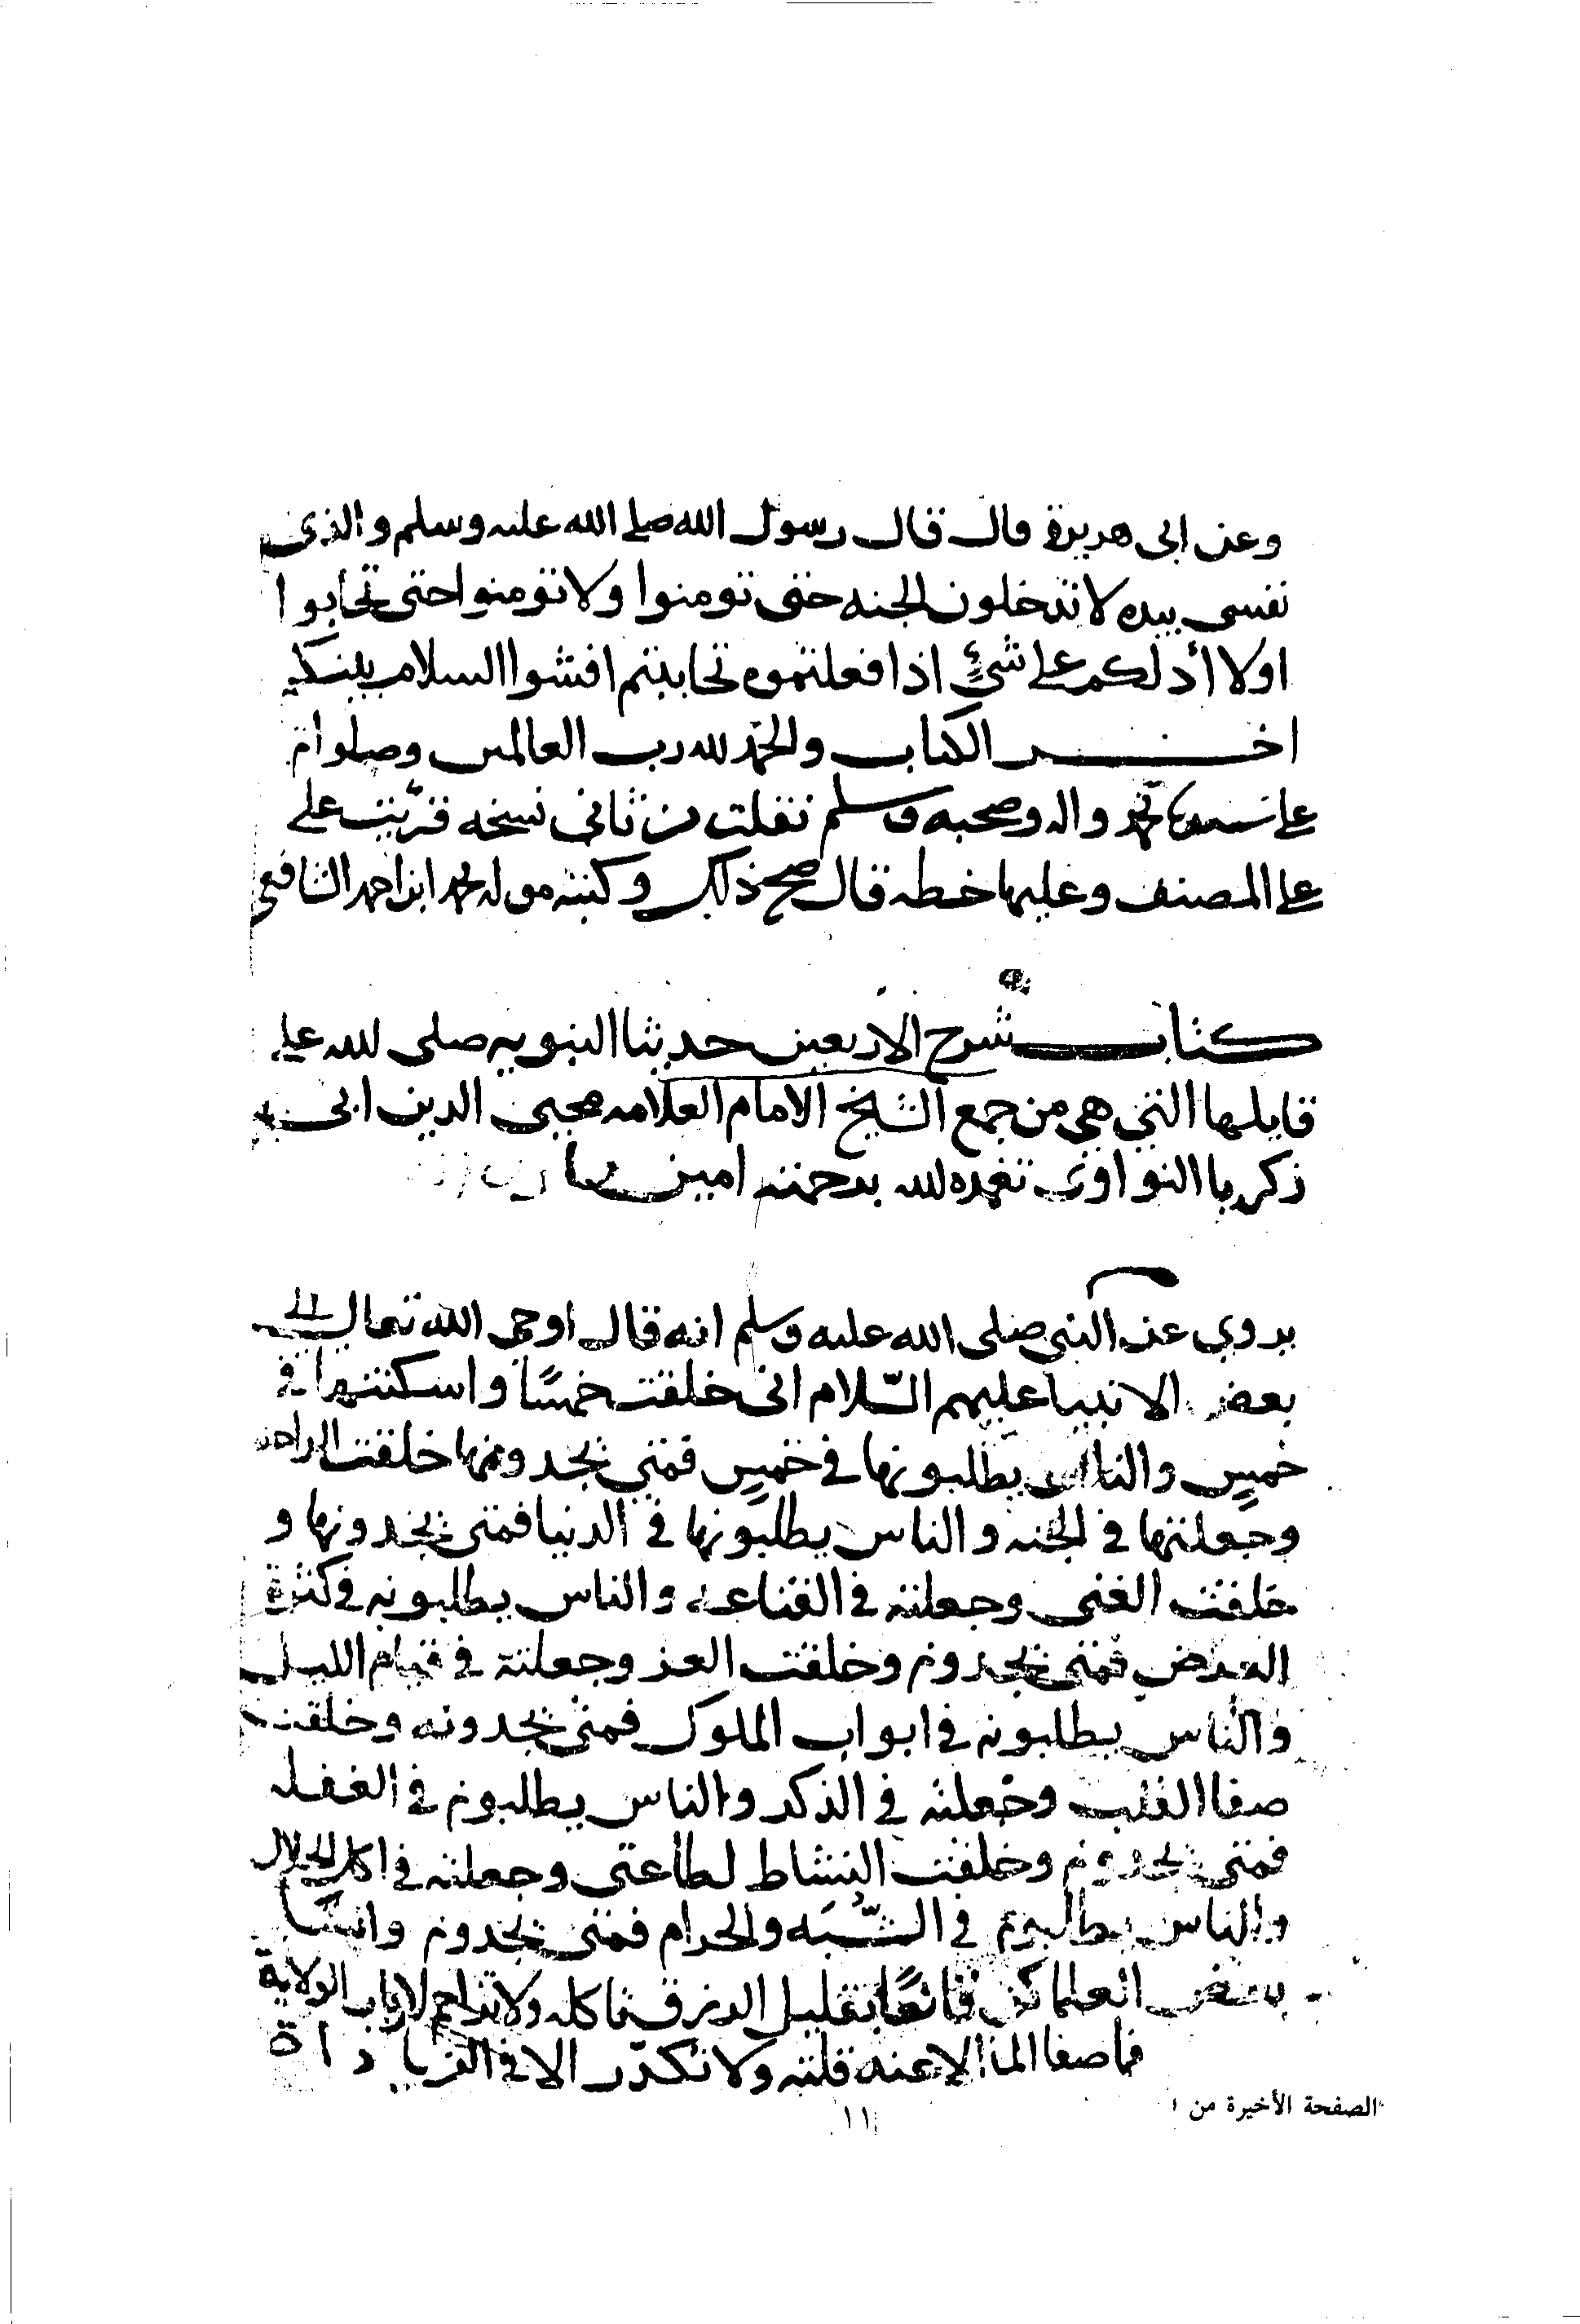 وعن ابى هريرة قال قال رسول الله صلى الله عليه وسلم والذى
نفسى بيده لا تدخلون الجنه حتى تومنوا ولا تومنوا حتى تحابوا
اولا أدلكم على شئٍ اذا فعلتموه تحاببتم افشوا السلام بينكم
اخر الكتاب والحمد لله رب العالمين وصلوات
على سيدنا محمد واله وصحبه وسلم نقلت من ثانى نسخه قريت على
على المصنف وعليها خطه قال صح ذلك وكتبه محمد ابن احمد الشافعى
كتاب شرح الاربعين حديثا النبويه صلى الله على
قايلها التي هي من جمع الشيخ الامام العلامه محيى الدين ابى
ذكريا النواوى تغمده الله برحمته امين
يروي عن النبى صلى الله عليه وسلم انه قال اوحى الله تعالى الى
بعض الانبيا عليهم السّلام انى خلقت خمسًا واسكنتها في
خمسٍ والناس يطلبونها في خمسٍ فمتي يجدونها خلقت الراحه
وجعلتها في الجنه والناس يطلبونها في الدنيا فمتى يجدونها و
خلقت الغنى وجعلته في القناعه والناس يطلبونه في كثرة
العرض فمتى يجدونه وخلقت العز وجعلته في قيام الليل
والناس يطلبونه في ابواب الملوك فمتى يجدونه وخلقت
صفا القلب وجعلته في الذكر والناس يطلبونه في الغفله
فمتى يجدونه وخلقت النشاط لطاعتى وجعلته في اكل الحلال
والناس يطلبونه في الشُّبَه والحرام فمتى يجدونه وانشا
بعض العلما كن قانعًا بقليل الرزق تاكله ولا تزاحم لارباب الولاية
فاصفا الما الا عند قلته ولا تكدّر الا في الزيادات
الصفحة الأخيرة من ا
١١